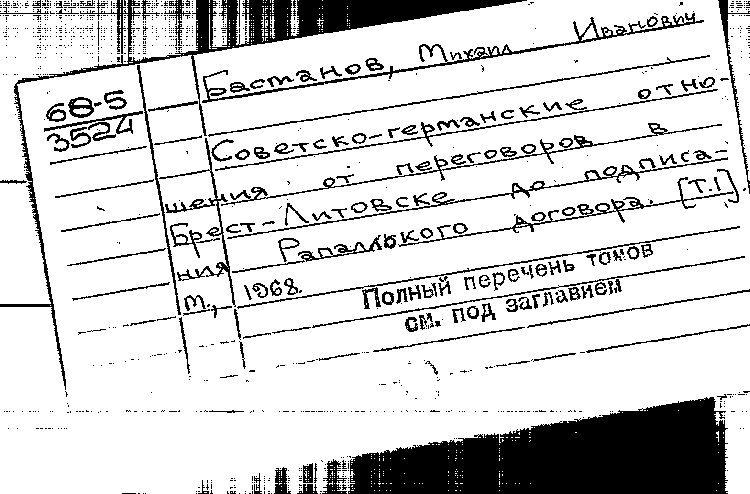 68-5
3524
Бастанов, Михаил Иванович
Советско-германские отно-
шения от переговоров в
Брест-Литовске до подписа-
ния Рапалльского договора. [Т.1].
М., 1968.
Полный перечень томов
см. под заглавием